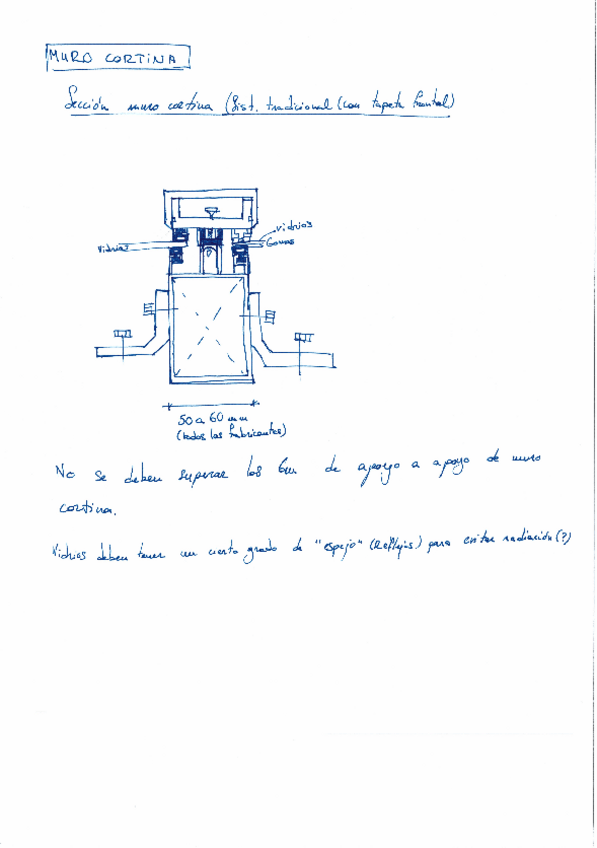 MURO CORTINA
Sección muro cortina (Sist. tradicional (con tapeta frontal)
vidrios
Gomas
Vidrios
50 a 60 mm
(todos los fabricantes)
No se deben superar los 6m de apoyo a apoyo de muro
cortina.
Vidrios deben tener un cierto grado de "espejo" (Reflejos) para evitar radiación (?)